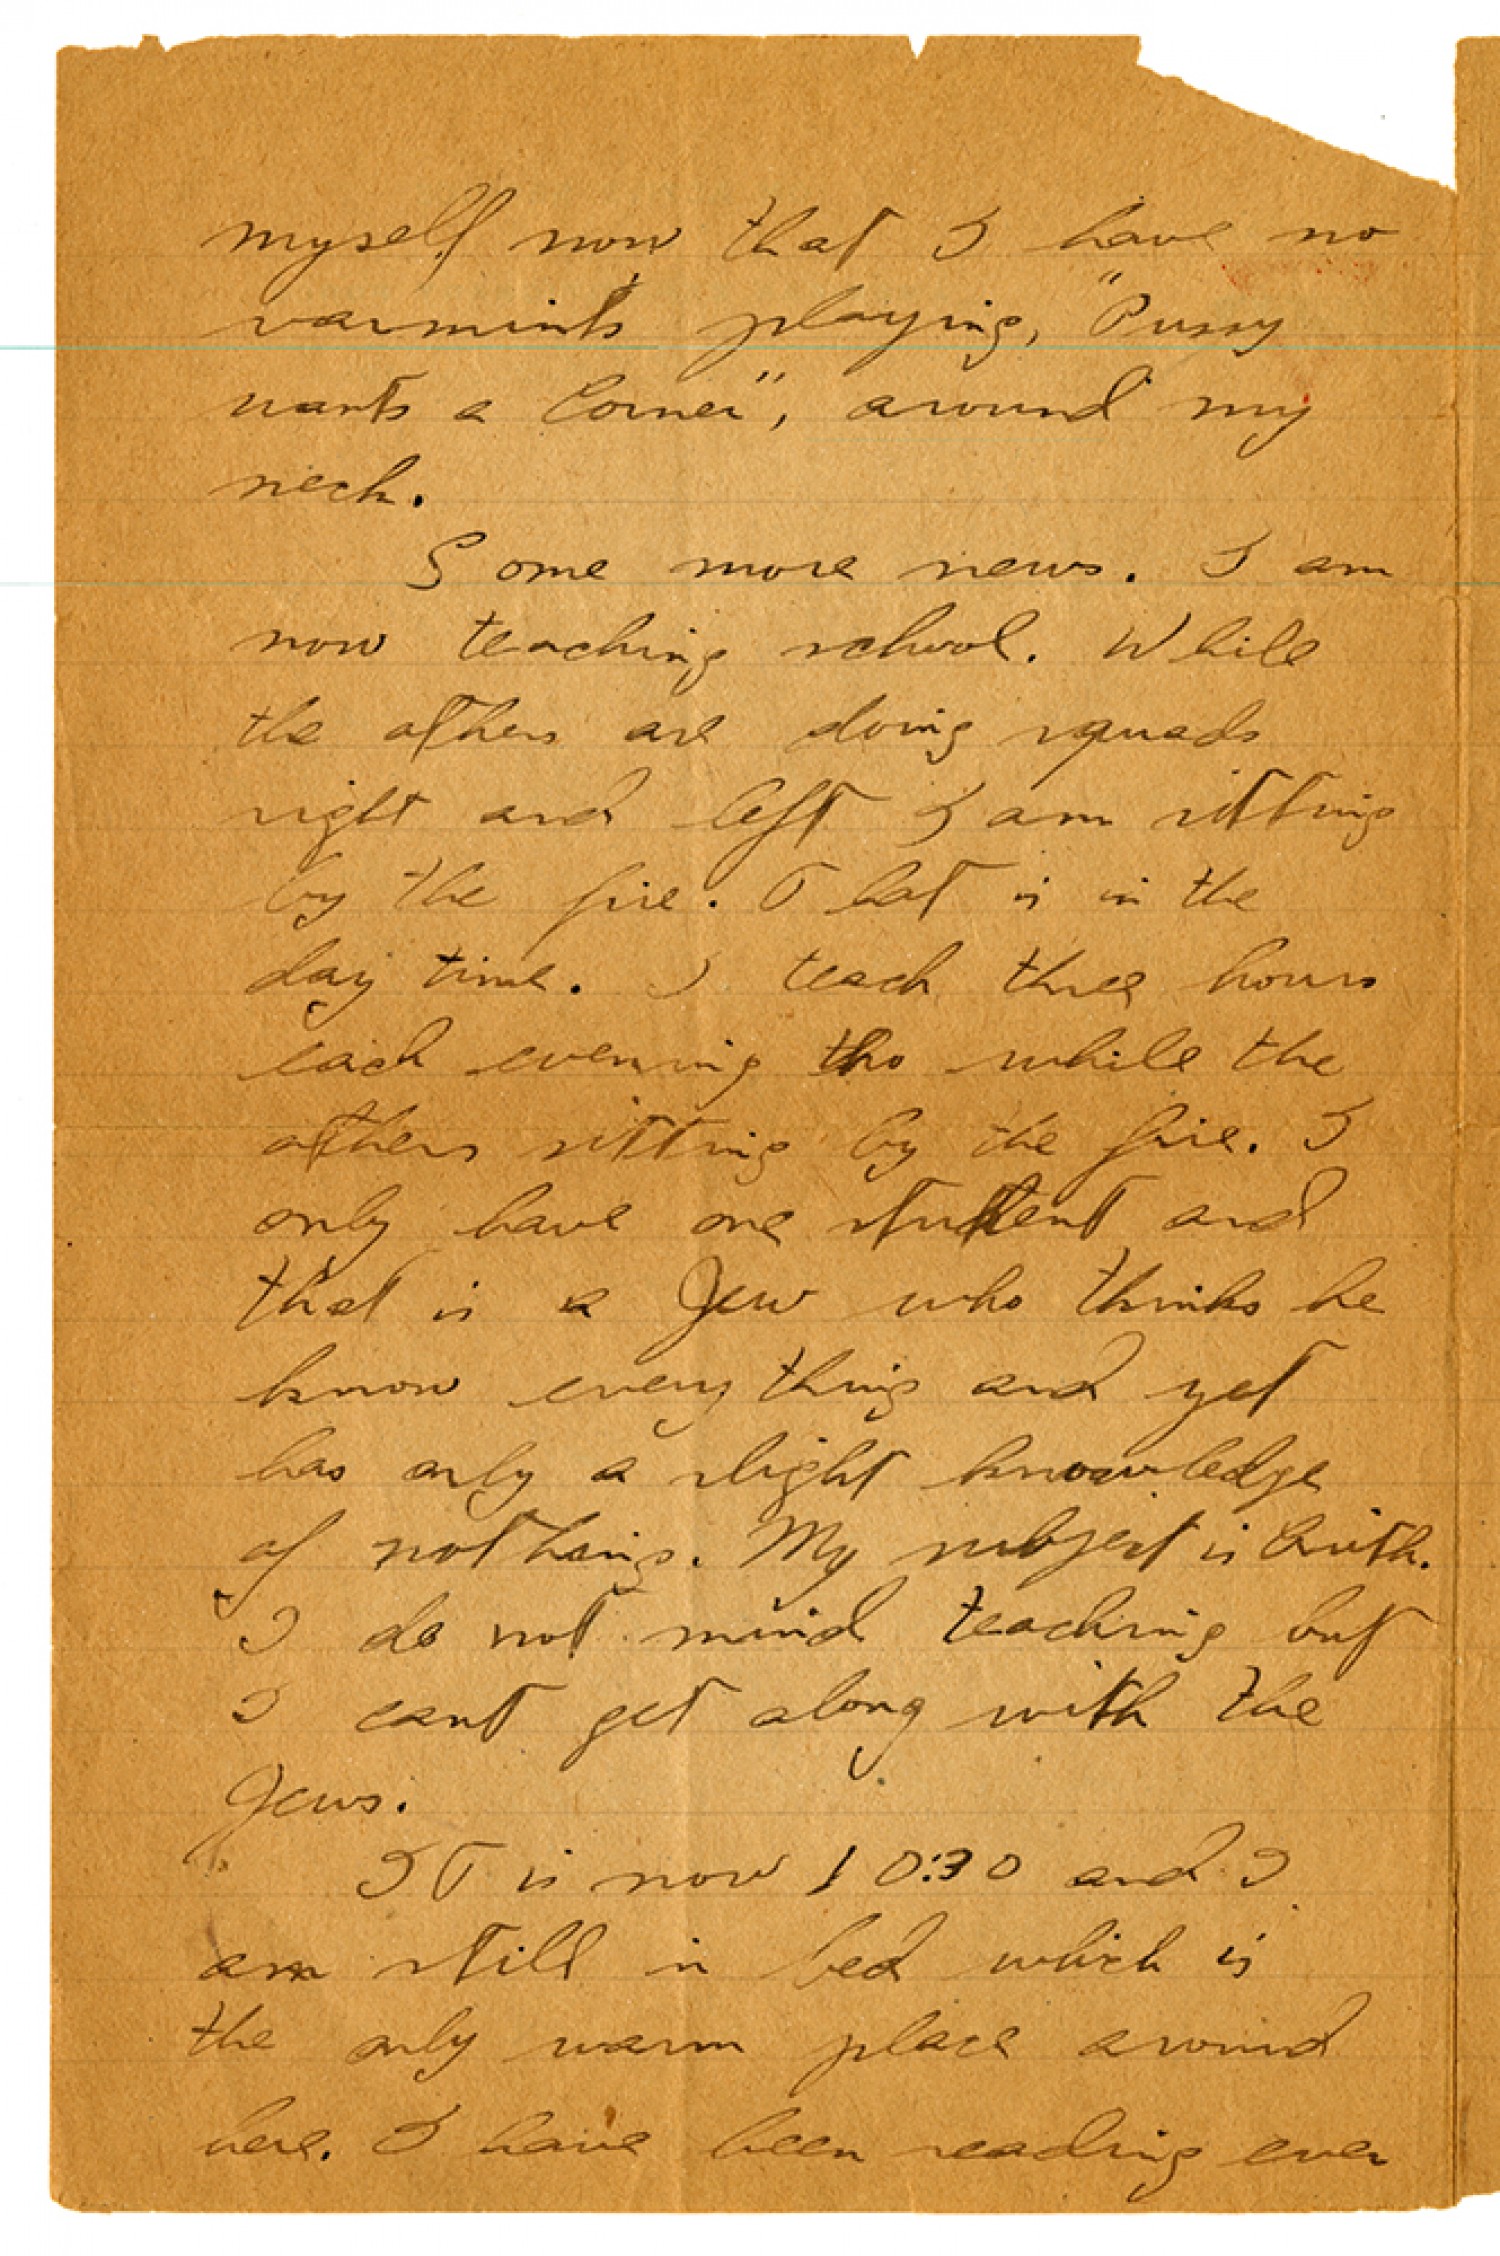 myself now that I have no
varmints playing, "Pussy
wants a Corner", around my
neck.
Some more news. I am
now teaching school. While
the others are doing squads
right and left I am sitting
by the fire. That is in the
day time. I teach three hours
each evening tho while the
others sitting by the fire. I
only have one student and
that is a Jew who thinks he
know every thing and yet
has only a slight knowledge
of nothing. My subject is Arith.
I do not mind teaching but
I cant get along with the
Jews.
It is now 10:30 and I
am still in bed which is
the only warm place around
here. I have been reading ever